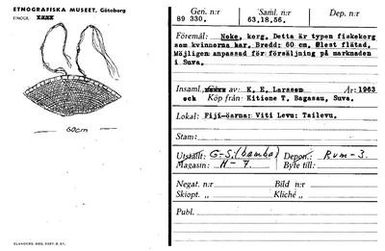 ETNOGRAFISKA MUSEET, Göteborg
60cm
Gen. n:r
89 330.
Saml. n:r
63,18,56.
Dep. n:r
Föremål: Noke, korg. Detta är typen fiskekorg
som kvinnorna har. Bredd: 60 cm. Glest flätad.
Möjligen anpassad för försäljning på marknaden
i Suva.
Insaml. av: K. E. Larsson År: 1963
och Köp från: Kitione T. Bagasau, Suva.
Lokal: Fiji-öarna: Viti Levu: Tailevu.
Stam:
Utställt: G-S. (bamba) Depon.: Rum-3.
Magasin: H-7. Byte till:
Negat. n:r Bild n:r
Skiopt. „ Kliché „
Publ.